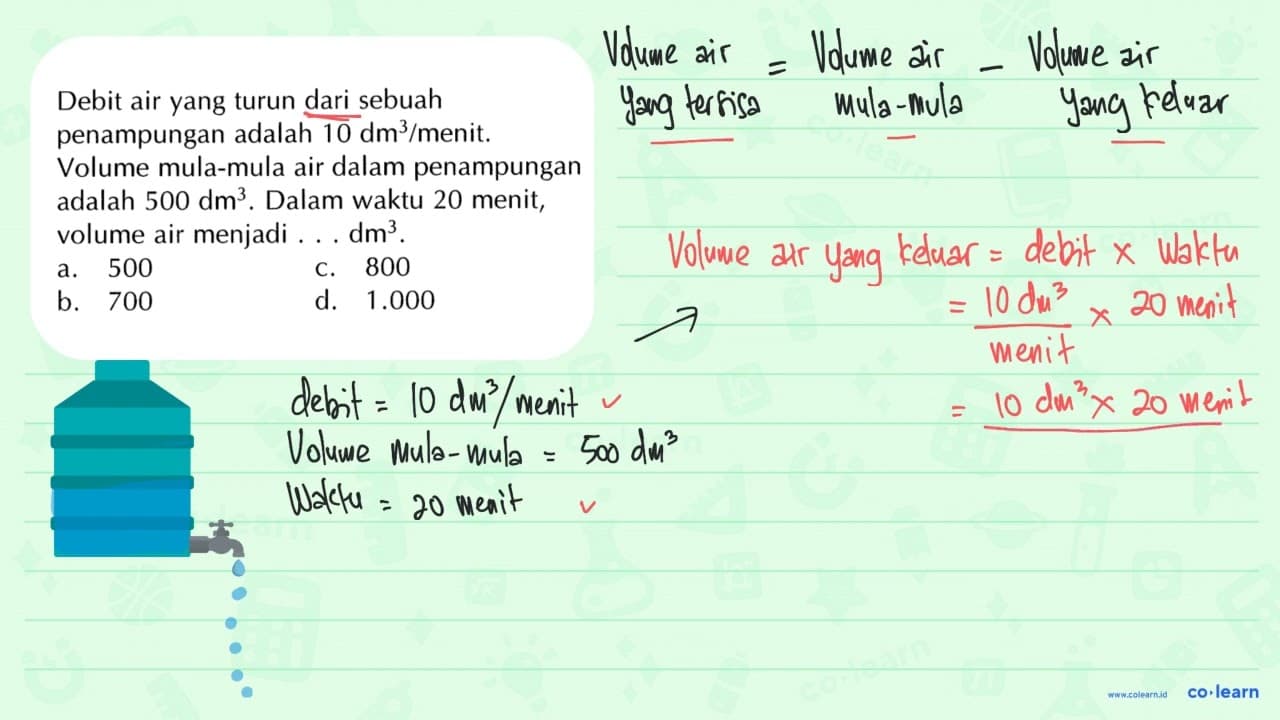 Debit air yang turun dari sebuah
penampungan adalah 10 dm³/menit.
Volume mula-mula air dalam penampungan
adalah 500 dm³. Dalam waktu 20 menit,
volume air menjadi . . . dm³.
a. 500 c. 800
b. 700 d. 1.000
Volume air = Volume air − Volume air
yang tersisa mula-mula yang keluar
Volume air yang keluar = debit × Waktu
= 10 dm³ × 20 menit
menit
= 10 dm³ × 20 menit
debit = 10 dm³/menit ✓
Volume mula-mula = 500 dm³
Waktu = 20 menit ✓
co·learn
co·learn
co·learn
www.colearn.id co·learn